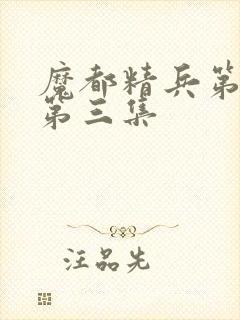 魔都精兵第
第三集
汪品先